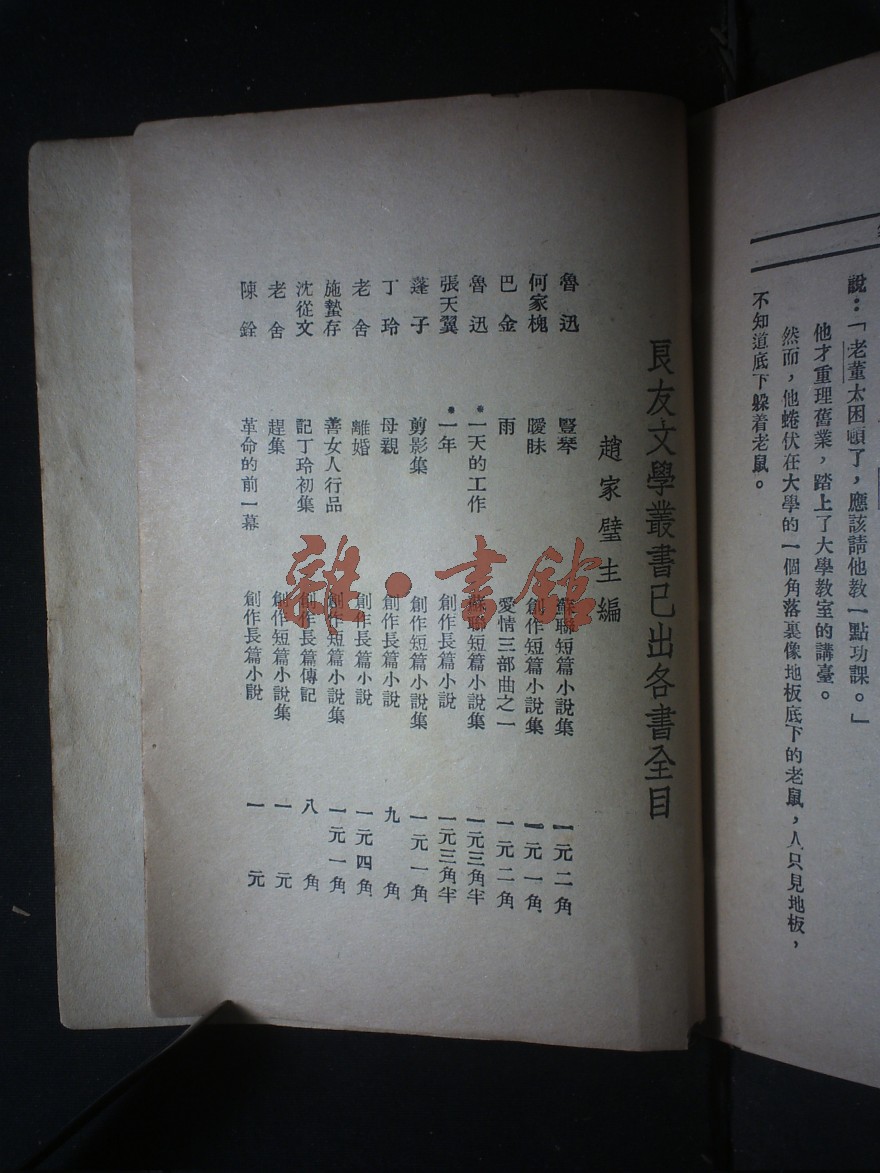 說：「老董太困頓了，應該請他教一點功課。」
他才重理舊業，踏上了大學教室的講臺。
然而，他蜷伏在大學的一個角落裏像地板底下的老鼠，人只見地板，
不知道底下躲着老鼠。
良友文學叢書已出各書全目
趙家璧主編
魯迅 豎琴 蘇聯短篇小說集 一元二角
何家槐 曖昧 創作短篇小說集 一元一角
巴金 雨 愛情三部曲之一 一元二角
魯迅 •一天的工作 蘇聯短篇小說集 一元三角半
張天翼 •一年 創作長篇小說 一元三角半
蓬子 剪影集 創作短篇小說集 一元一角
丁玲 母親 創作長篇小說 九角
老舍 離婚 創作長篇小說 一元四角
施蟄存 善女人行品 創作短篇小說集 一元一角
沈從文 記丁玲初集 創作長篇傳記 八角
老舍 趕集 創作短篇小說集 一元
陳銓 革命的前一幕 創作長篇小說 一元
雜·書館